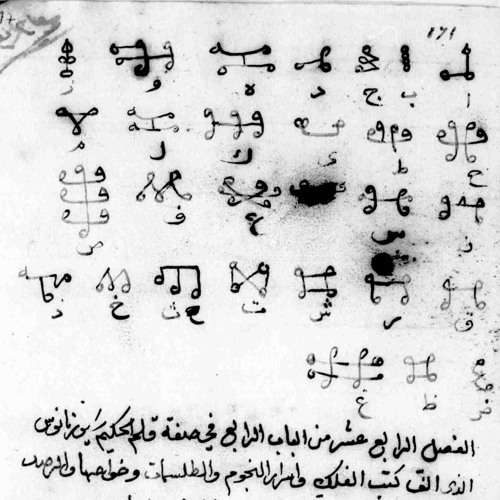 ١٧١
ا ب ج د ه و ز
ح ط ى ك ل م
ن س ع ف ص
ق ر ش ت ث خ ذ
ض ظ غ
الفصل الرابع عشر من الباب الرابع في صفة قلم الحكيم
الذى الف كتب الفلك واسرار النجوم والطلسمات وخواصها والرصد